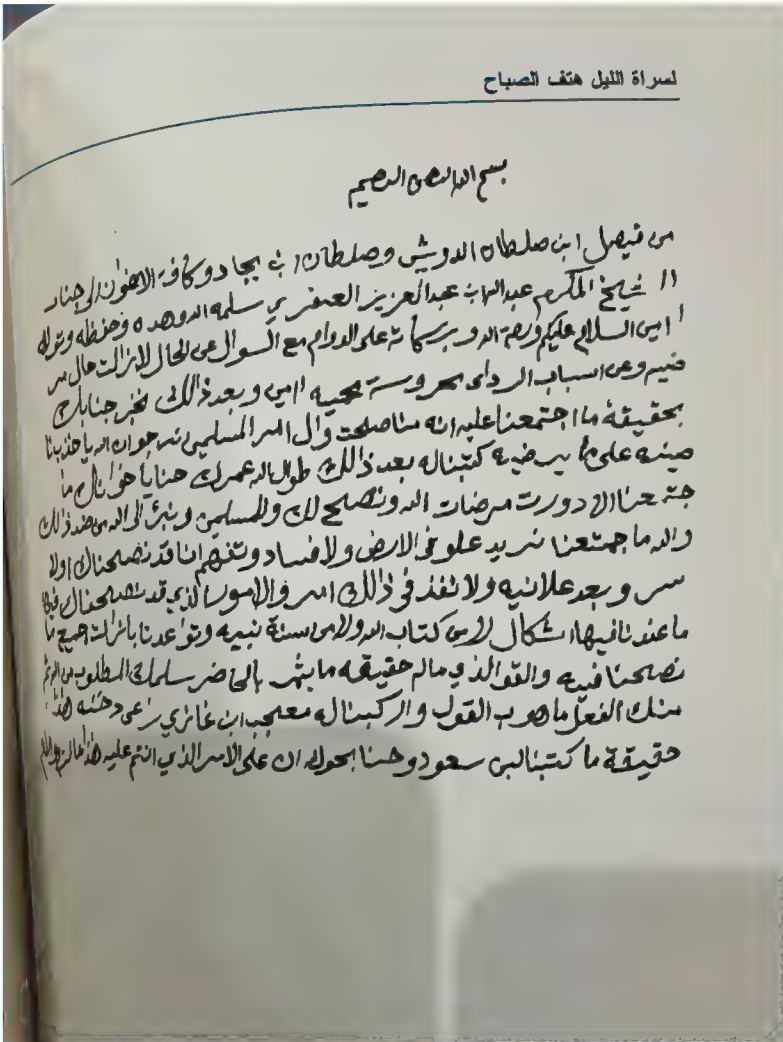 لسراة الليل هتف الصباح
بسم الله الرحمن الرحيم
من فيصل ابن صلطان الدويش وصلطان ابن بجاد وكافة الاخوان الى جناب
الشيخ المكرم عبدالله بن عبدالعزيز العنقري سلمه الله وهداه وحفظه وتولاه
امين السلام عليكم ورحمة الله وبركاته على الدوام مع السوال عن الحال لازالت حال مر
ضيه وعن اسباب الردى محروسة محميه اامين وبعد ذالك نخبر جنابك
بحقيقة ما اجتمعنا عليه انه مناصحت وال امر المسلمين نرجو ان الله ياخذ بنا
صيته على ما يرضيه كتبناله بعد ذالك طول الله عمرك حنايا خوانك ما
جتمعنا الا دورت مرضات الله ونصح لك وللمسلمين ونبرئ الى الله من ضد ذالك
والله ما جمتعنا نريد علو في الارض ولا فساد وتفهم انا قد نصحناك اولا
سر وبعد علانيه ولا تفذ في ذالك امر والامور الذي قد نصحناك فيها
ما عندنا فيها اشكال لا من كتاب الله ولا من سنة نبيه وتواعدنا بازالت جميع ما
نصحنا فيه والقو الذي ماله حقيقه ما يثمر بالحاضر سلمك الله المطلوب من الله ثم
منك الفعل ماهوب القول واركبناله معجب ابن غازي
حقيقة ما كتبنا لبن سعود وحنا بحول الله ان على الامر الذي انتم عليه هذا ما لزم والسلام